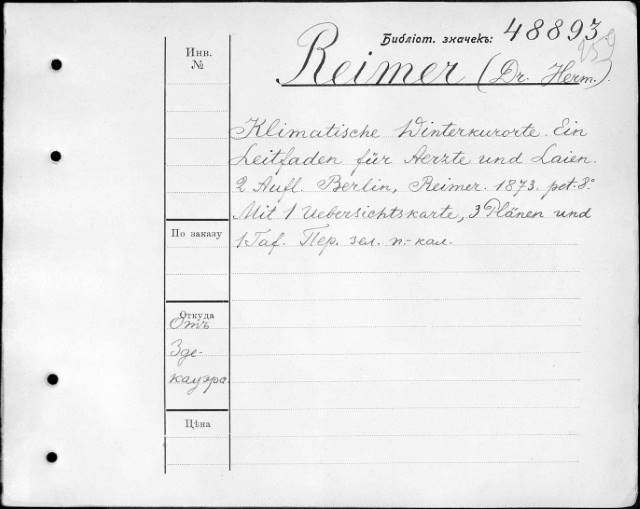 Библіот. значекъ: 48893
Инв.
№
Reimer (Dr. Herm.).
Klimatische Winterkurorte. Ein
Leitfaden für Aerzte und Laien.
2 Aufl. Berlin, Reimer. 1873. pet. 8°
Mit 1 Uebersichtskarte, 3 Plänen und
1 Taf. Пер. зел. п.-кал.
По заказу
Откуда
Отъ
Зде-
кауэра.
Цѣна